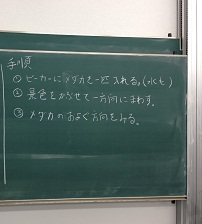 手順
① ビーカーにメダカを一匹入れる。(水も)
② 景色をからせて一方向にまわす。
③ メダカのおよぐ方向をみる。